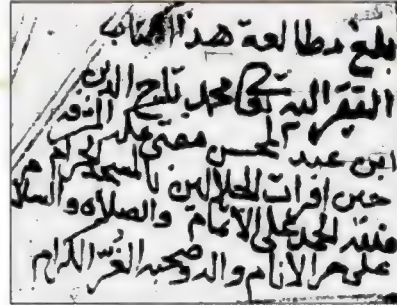 بلغ مطالعة هذا الكتاب
الفقير اليه تعالى محمد تاج الدين
ابن عبد المحسن مفتي مكه المشرفه
حين اقرات الجلالين بالمسجد الحرام
فلله الحمد على الاتمام والصلاه والسلام
على خير الانام واله وصحبه الغر الكرام